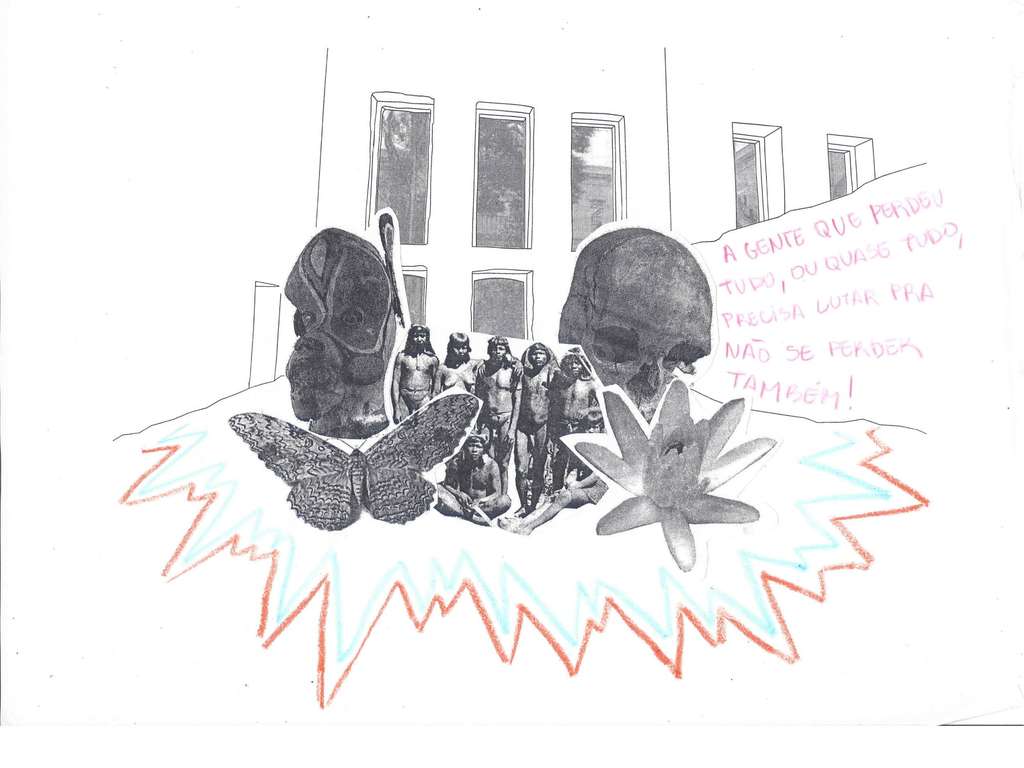 A GENTE QUE PERDEU
TUDO, OU QUASE TUDO,
PRECISA LUTAR PRA
NÃO SE PERDER
TAMBÉM!